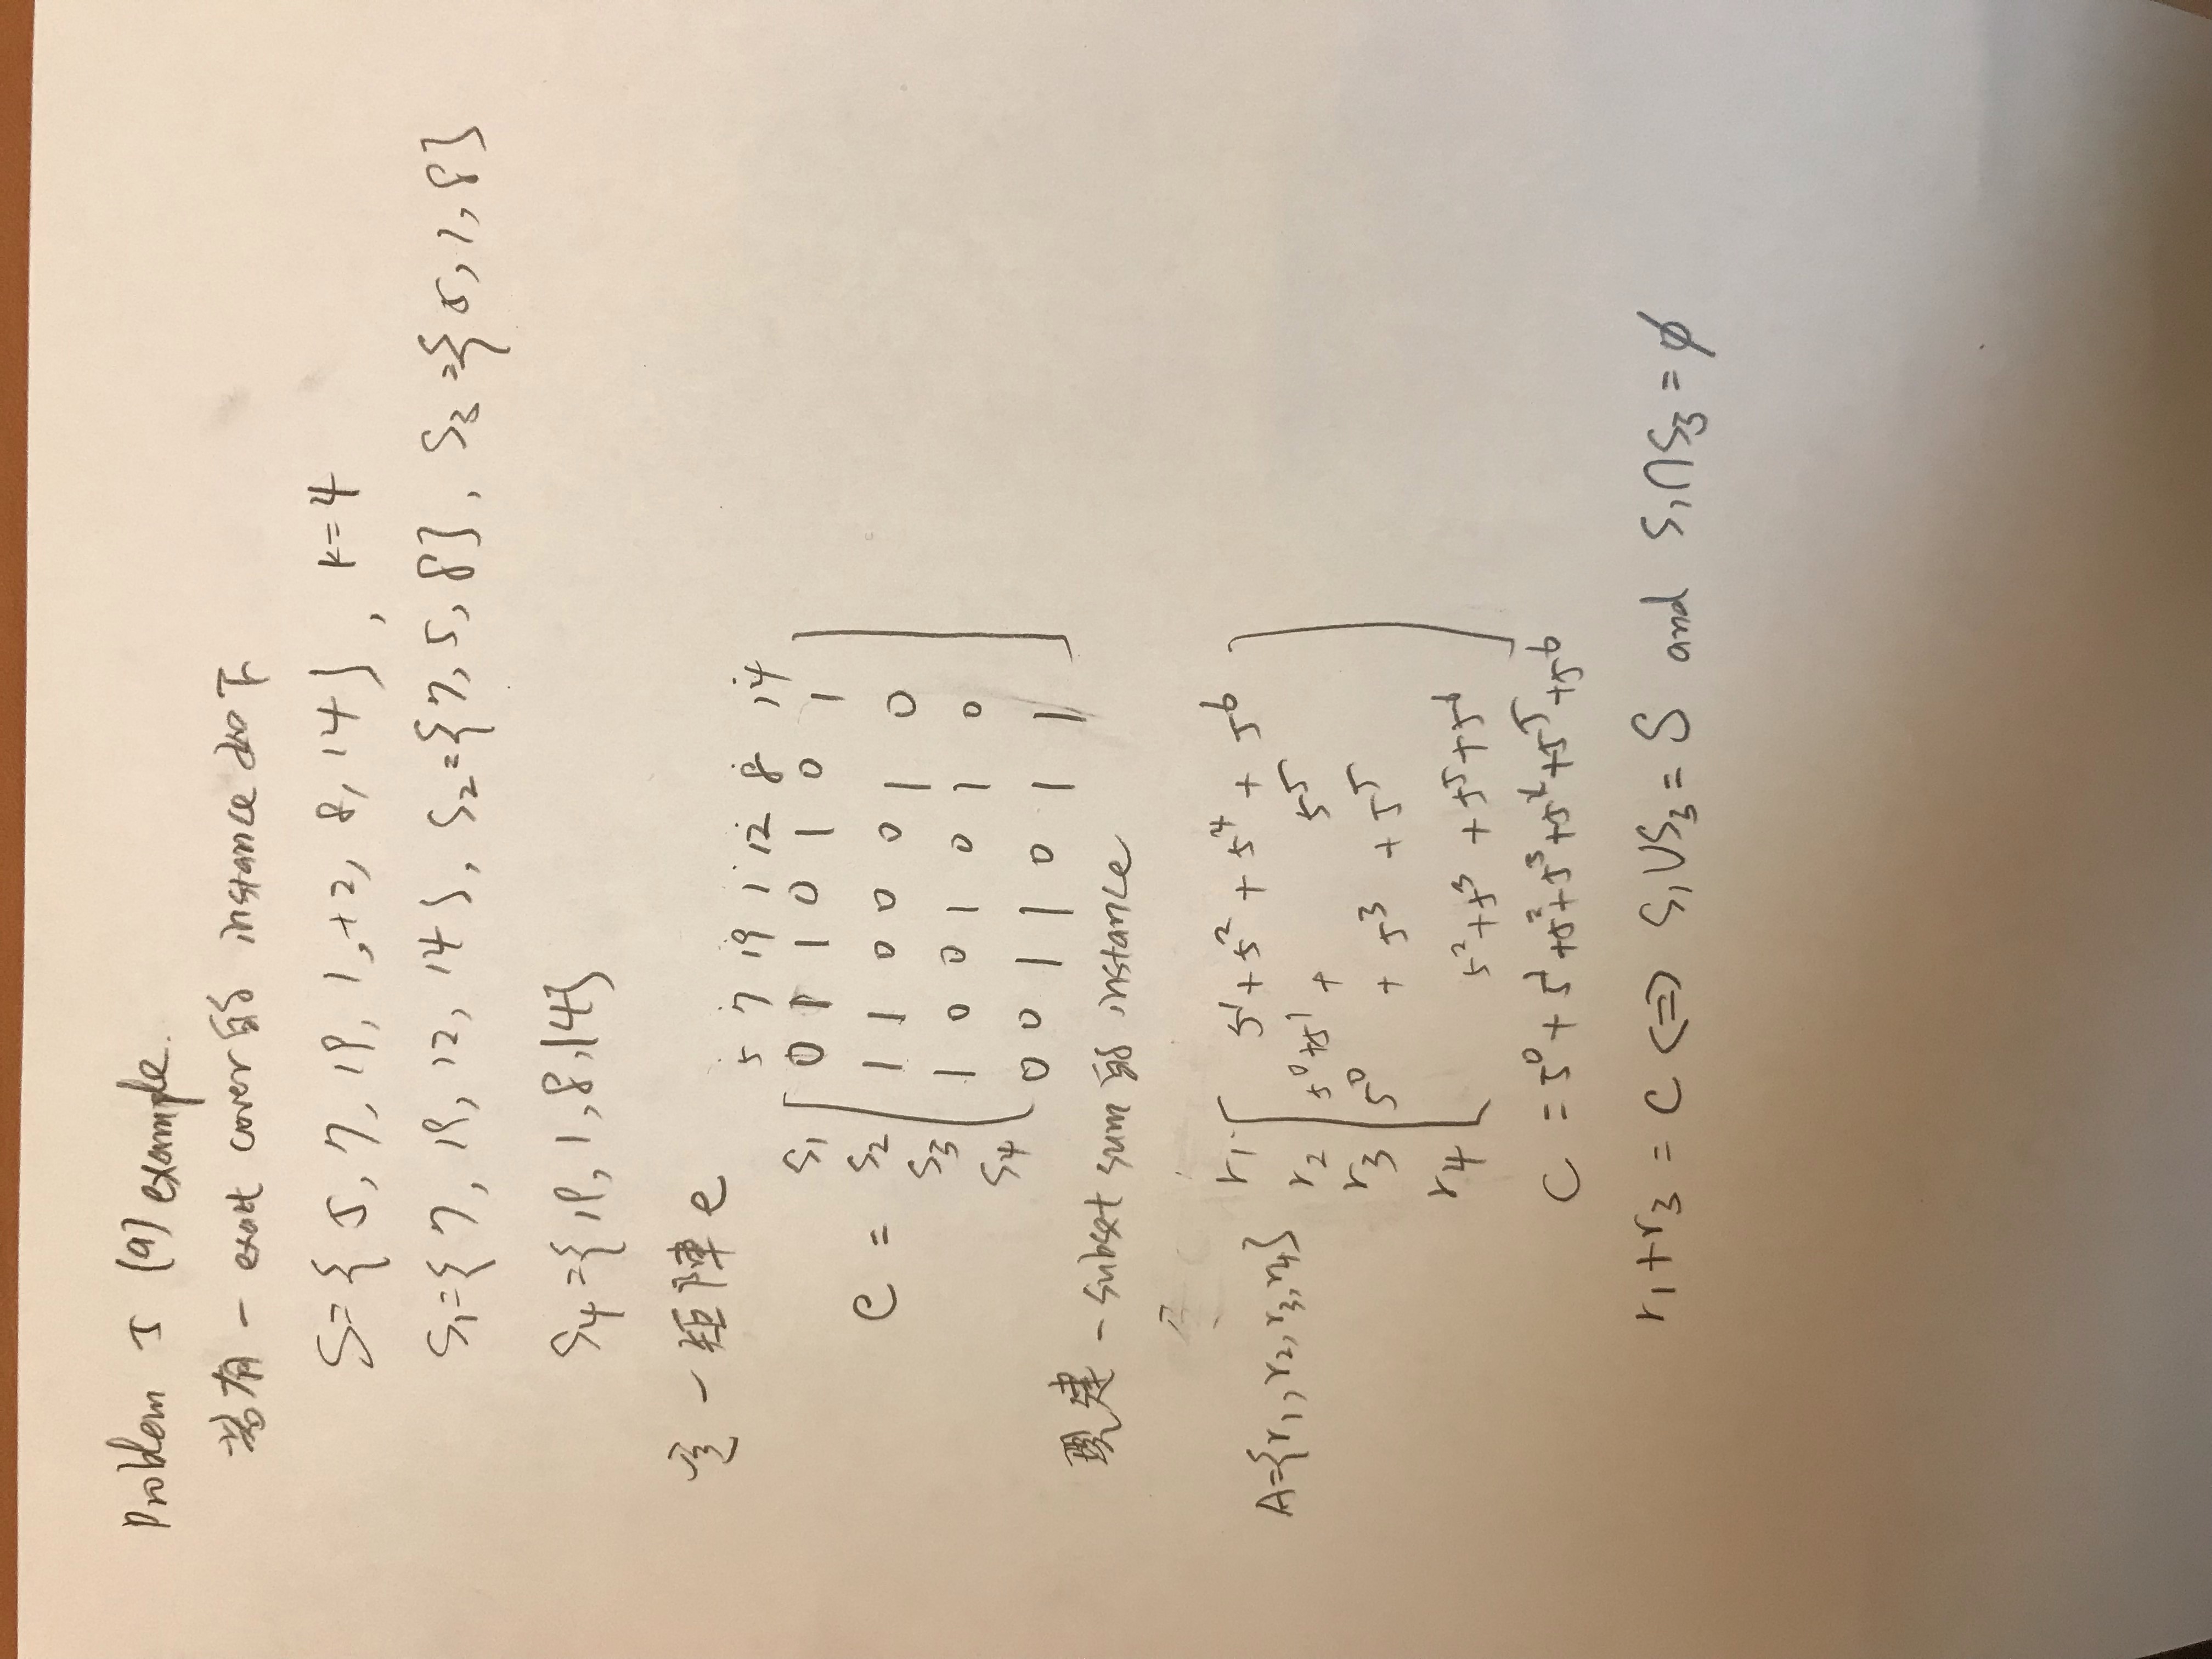 Problem 5 (a) example.
若有一 exact cover的 instance 如下
S={ 5, 7, 19, 1, 12, 8, 14 } , k=4
S₁={ 7, 19, 12, 14 }, S₂={7, 5, 8}, S₃={ 5, 1, 8}
S₄={ 19, 1, 8, 14}
定一矩陣 e
5 7 19 1 12 8 14
S₁ 0 1 1 0 1 0 1
e = S₂ 1 1 0 0 0 1 0
S₃ 1 0 0 1 0 1 0
S₄ 0 0 1 1 0 1 1
現建一subset sum 的 instance
r₁ 5¹+5² + 5⁴ + 5⁶
A={r₁, r₂, r₃, r₄} r₂ 5⁰+5¹ + 5⁵
r₃ 5⁰ + 5³ + 5⁵
r₄ 5²+5³ + 5⁵+5⁶
C = 5⁰ + 5¹ +5²+5³+5⁴+5⁵+5⁶
r₁+r₃ = C ⟺ S₁∪S₃ = S and S₁∩S₃ = ϕ